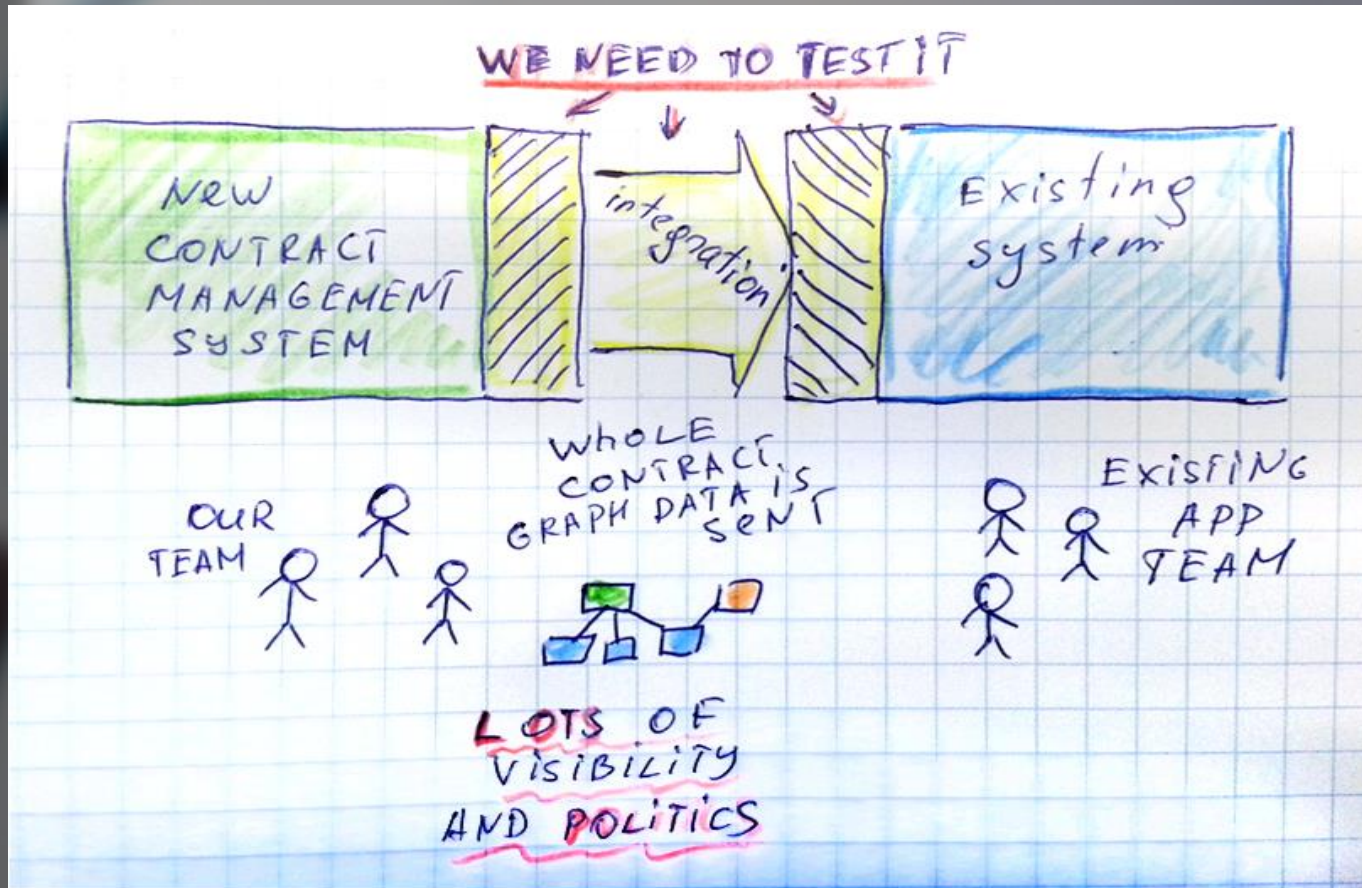 WE NEED TO TEST IT
New
CONTRACT
MANAGEMENT
SYSTEM
integration
Existing
system
WHOLE
CONTRACT
GRAPH DATA IS
SENT
OUR
TEAM
EXISTING
APP
TEAM
LOTS OF
VISIBILITY
AND POLITICS